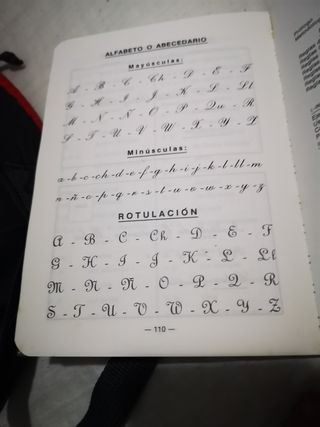 ALFABETO O ABECEDARIO
Mayúsculas:
A - B - C - Ch - D - E - F
G - H - I - J - K - L - Ll
M - N - Ñ - O - P - Qu - R
S - T - U - V - W - X - Y - Z
Minúsculas:
a-b-c-ch-d-e-f-g-h-i-j-k-l-ll-m
n-ñ-o-p-q-r-s-t-u-v-w-x-y-z
ROTULACIÓN
A - B - C - Ch - D - E - F
G - H - I - J - K - L - Ll
M - N - Ñ - O - P - Q - R
S - T - U - V - W - X - Y - Z
— 110 —